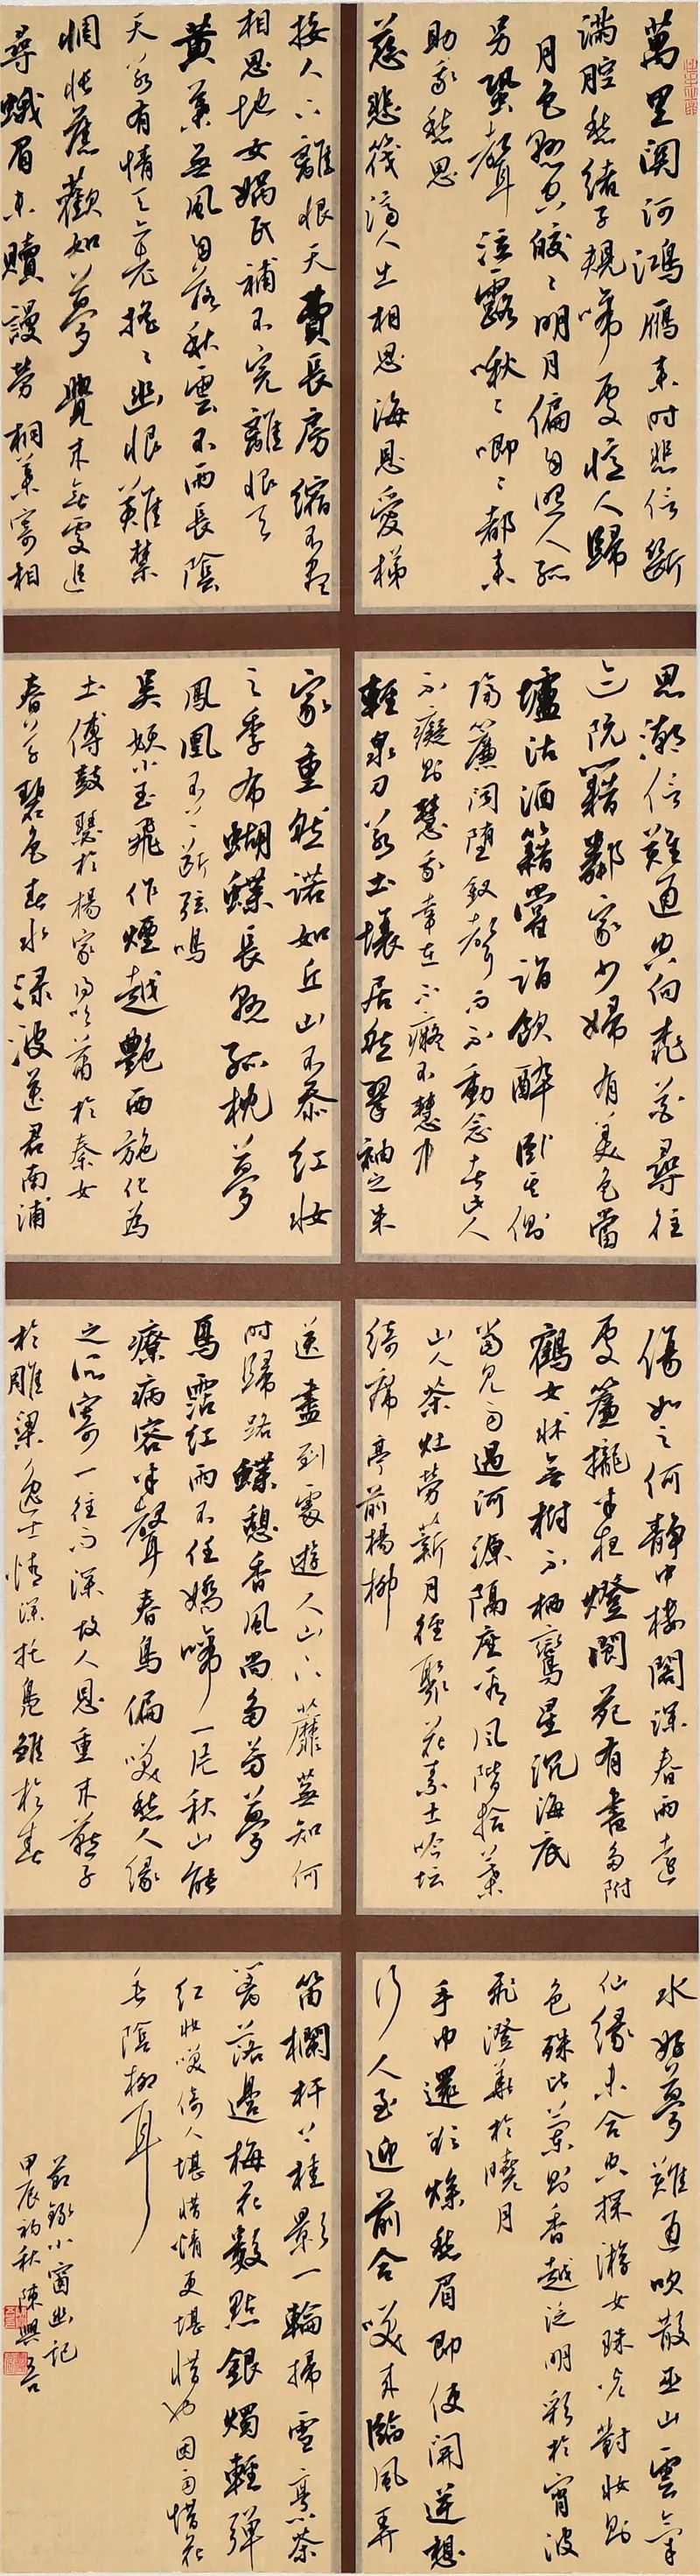 萬里關河鴻雁來時悲信斷
滿腔愁緒子規啼處憶人歸
月色懸空皎皎明月偏自照人孤
另蛩聲泣露啾啾唧唧都來
助我愁思
慈悲筏濟人出相思海恩愛梯
接人下離恨天費長房縮不盡
相思地女媧氏補不完離恨天
黃葉無風自落秋雲不雨長陰
天若有情天亦老搖搖幽恨難禁
惆悵舊歡如夢覺來無處追
尋蛾眉未贖謾勞桐葉寄相
思潮信難通空向桃花尋往
迹阮籍鄰家少婦有美色當
壚沽酒籍嘗詣飲醉臥其側
隔簾聞墮釵聲而不動念者此人
不癡則慧我幸在不癡不慧中
輕泉刀若土壤居然翠袖之朱
家重然諾如丘山不忝紅妝
之季布蝴蝶長懸孤枕夢
鳳凰不上斷弦鳴
吳妖小玉飛作煙越艷西施化為
土傅鼓瑟於楊家得吹簫於秦女
春草碧色春水淥波送君南浦
傷如之何靜中樓閣深春雨遠
處簾攏半夜燈閬苑有書多附
鶴女牀無樹不棲鸞星沉海底
當見雨過河源隔座看風階拾葉
山人茶灶勞薪月徑聚花素士吟壇
綺席亭前楊柳
送盡到處遊人山下蘼蕪知何
時歸路蝶憩香風尚多芳夢
鳥霑紅雨不任嬌啼一片秋山能
療病容半聲春鳥偏喚愁人緣
之所寄一往而深故人恩重來燕子
於雕梁逸士情深托鳧雛於春
水好夢難通吹散巫山雲氣
仙緣未合空探游女珠光對妝則
色殊比蘭則香越泛明彩於宵波
飛澄華於曉月
手巾還欲燥愁眉即使開逆想
行人至迎前含笑來臨風弄
笛欄杆上桂影一輪掃雪烹茶
籬落邊梅花數點銀燭輕彈
紅妝笑倚人堪惜情更堪惜也困雨惜花
垂陰柳耳
節錄小窗幽記
甲辰初秋陳興吾